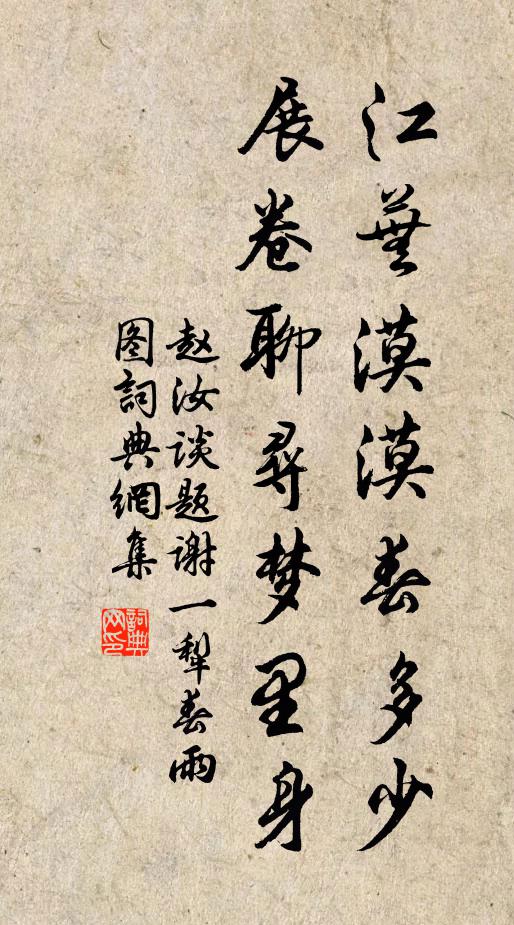 江蕪漠漠春多少
展卷聊尋梦里身
赵汝谈题谢一犁春雨
图詞典網集
詞典网印